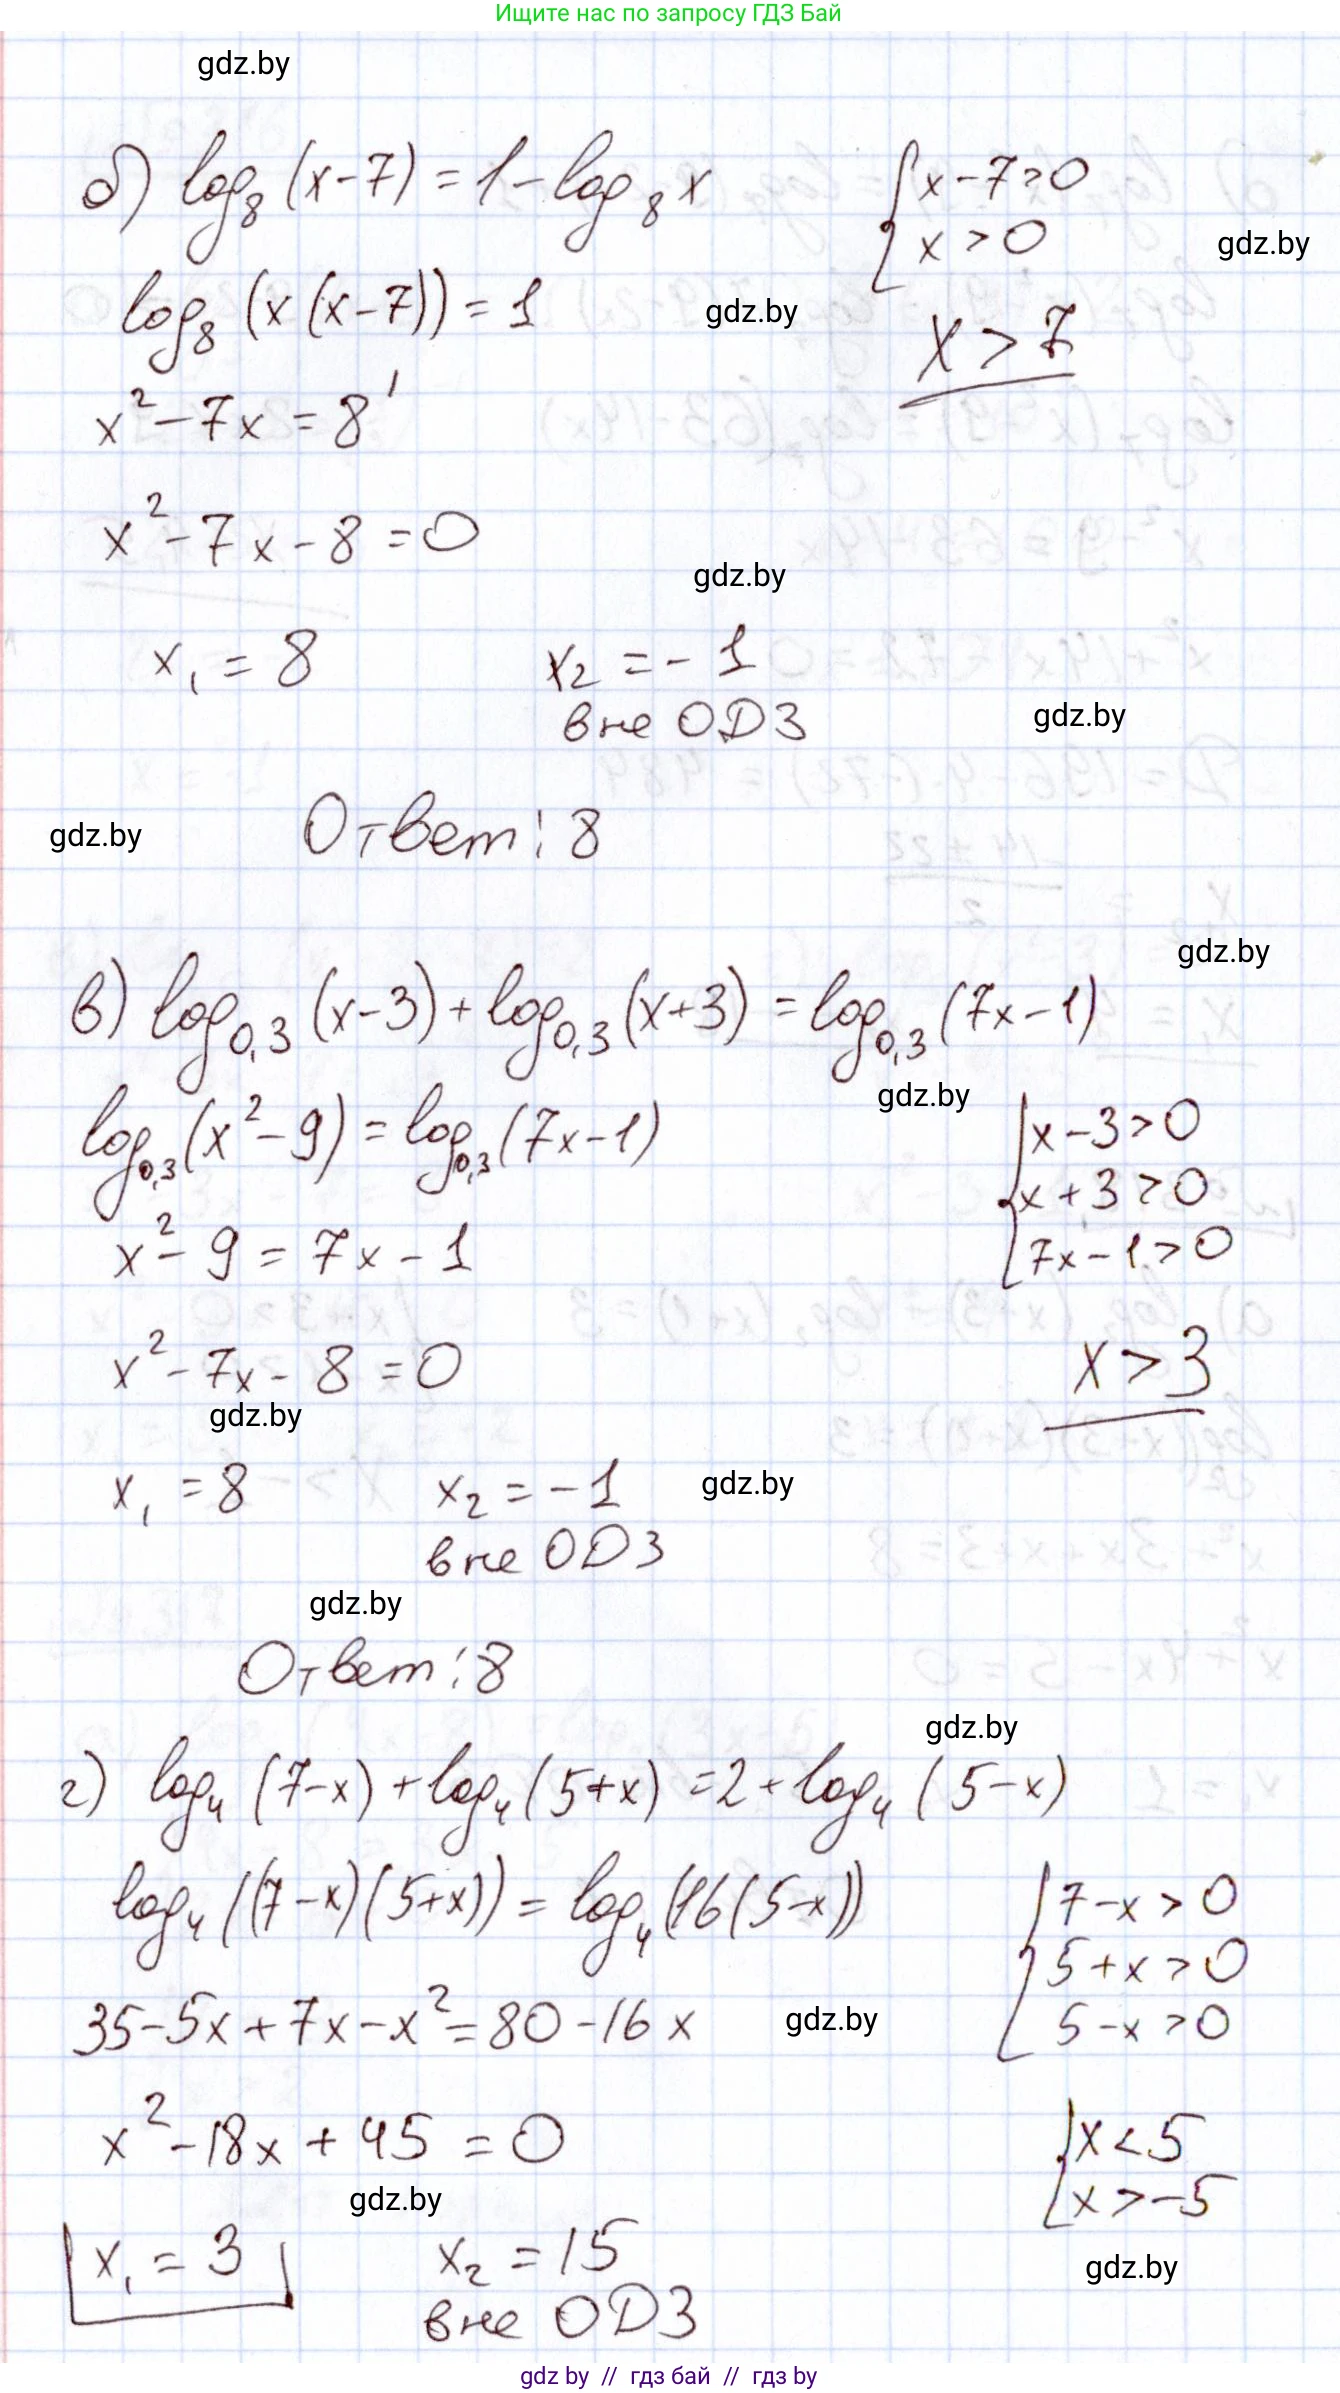 Ищите нас по запросу ГДЗ Бай
gdz.by
б) log₈ (x-7) = 1 - log₈ x
{ x-7>0
x > 0
gdz.by
log₈ (x (x-7)) = 1
gdz.by
x > 7
x² - 7x = 8¹
x² - 7x - 8 = 0
gdz.by
x₁ = 8
x₂ = - 1
вне ОДЗ
gdz.by
gdz.by
Ответ: 8
gdz.by
в) log₀,₃ (x-3) + log₀,₃ (x+3) = log₀,₃ (7x-1)
gdz.by
log₀,₃ (x² - 9) = log₀,₃ (7x-1)
{ x-3>0
x+3>0
7x-1>0
x² - 9 = 7x - 1
x² - 7x - 8 = 0
x > 3
gdz.by
x₁ = 8
x₂ = -1
gdz.by
вне ОДЗ
gdz.by
Ответ: 8
gdz.by
г) log₄ (7-x) + log₄ (5+x) = 2 + log₄ (5-x)
log₄ ((7-x)(5+x)) = log₄ (16(5-x))
{ 7-x > 0
5+x > 0
5-x > 0
35-5x+7x-x² = 80-16x
gdz.by
x² - 18x + 45 = 0
{ x < 5
x > -5
gdz.by
x₁ = 3
x₂ = 15
gdz.by
вне ОДЗ
gdz by // гдз бай // гдз by